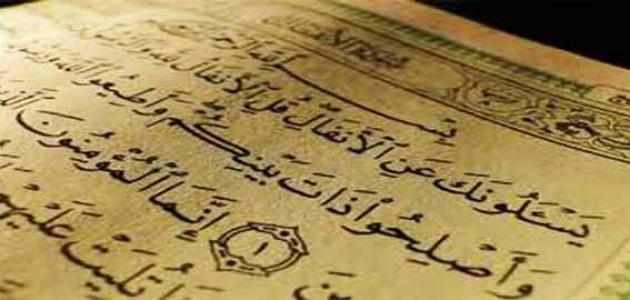 سُورَةُ الْأَنْفَالِ
بِسْمِ اللَّهِ الرَّحْمَٰنِ الرَّحِيمِ
يَسْـَٔلُونَكَ عَنِ ٱلْأَنفَالِ قُلِ ٱلْأَنفَالُ لِلَّهِ وَٱلرَّسُولِ
وَأَصْلِحُوا۟ ذَاتَ بَيْنِكُمْ وَأَطِيعُوا۟ ٱللَّهَ وَرَسُو
ينَ ١ إِنَّمَا ٱلْمُؤْمِنُونَ ٱلَّذِ
تُلِيَتْ عَلَيْهِمْ